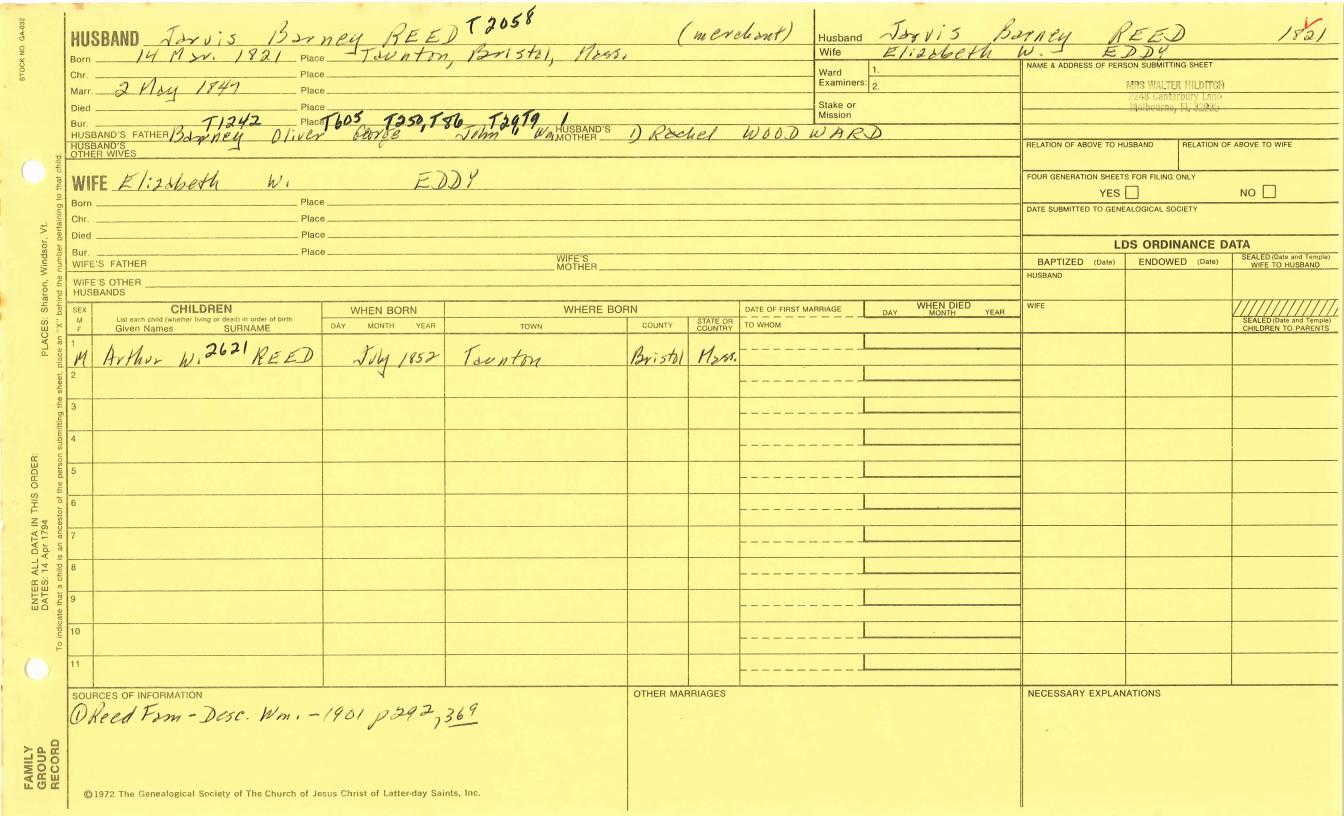 STOCK NO. GA-032
HUSBAND Jarvis Barney REED T2058 (merchant)
Born 14 Mar. 1821 Place Taunton, Bristol, Mass.
Chr. Place
Marr. 2 May 1847 Place
Died Place
Bur. Place
T1242 T605 T250, T86 T29, T9 1
HUSBAND'S FATHER Barney Oliver George John Wm HUSBAND'S MOTHER 1) Rachel WOODWARD
HUSBAND'S OTHER WIVES
WIFE Elizabeth W. EDDY
Born Place
Chr. Place
Died Place
Bur. Place
WIFE'S FATHER WIFE'S MOTHER
WIFE'S OTHER HUSBANDS
Husband Jarvis Barney REED 1821
Wife Elizabeth W. EDDY
Ward Examiners: 1. 2.
Stake or Mission
NAME & ADDRESS OF PERSON SUBMITTING SHEET
MRS WALTER HILDITCH
2248 Canterbury Lane
Melbourne, Fl.
RELATION OF ABOVE TO HUSBAND RELATION OF ABOVE TO WIFE
FOUR GENERATION SHEETS FOR FILING ONLY
YES NO
DATE SUBMITTED TO GENEALOGICAL SOCIETY
LDS ORDINANCE DATA
BAPTIZED (Date) ENDOWED (Date) SEALED (Date and Temple) WIFE TO HUSBAND
HUSBAND
WIFE
SEALED (Date and Temple) CHILDREN TO PARENTS
SEX M F
CHILDREN
List each child (whether living or dead) in order of birth
Given Names SURNAME
WHEN BORN
DAY MONTH YEAR
WHERE BORN
TOWN COUNTY STATE OR COUNTRY
DATE OF FIRST MARRIAGE
TO WHOM
WHEN DIED
DAY MONTH YEAR
1 M Arthur W. 2621 REED July 1852 Taunton Bristol Mass.
2
3
4
5
6
7
8
9
10
11
SOURCES OF INFORMATION
① Reed Fam - Desc. Wm. - 1901 p292, 369
OTHER MARRIAGES
NECESSARY EXPLANATIONS
©1972 The Genealogical Society of The Church of Jesus Christ of Latter-day Saints, Inc.
FAMILY GROUP RECORD
ENTER ALL DATA IN THIS ORDER:
DATES: 14 Apr 1794 PLACES: Sharon, Windsor, Vt.
To indicate that a child is an ancestor of the person submitting the sheet, place an "X" behind the number pertaining to that child.